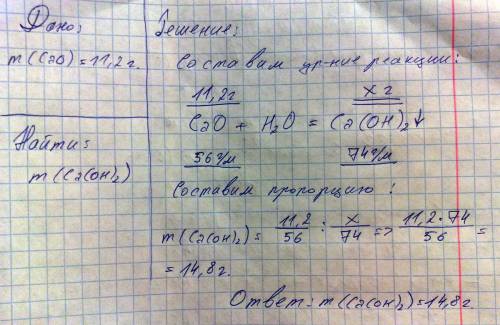 Дано:
m(CaO)=11,2г.
Найти:
m(Ca(OH)₂)
Решение:
Составим ур-ние реакции:
11,2г x г
CaO + H₂O = Ca(OH)₂↓
56г/м 74г/м
Составим пропорцию:
m(Ca(OH)₂)= 11,2/56 : x/74 => 11,2·74/56 =
=14,8г.
Ответ: m(Ca(OH)₂)=14,8г